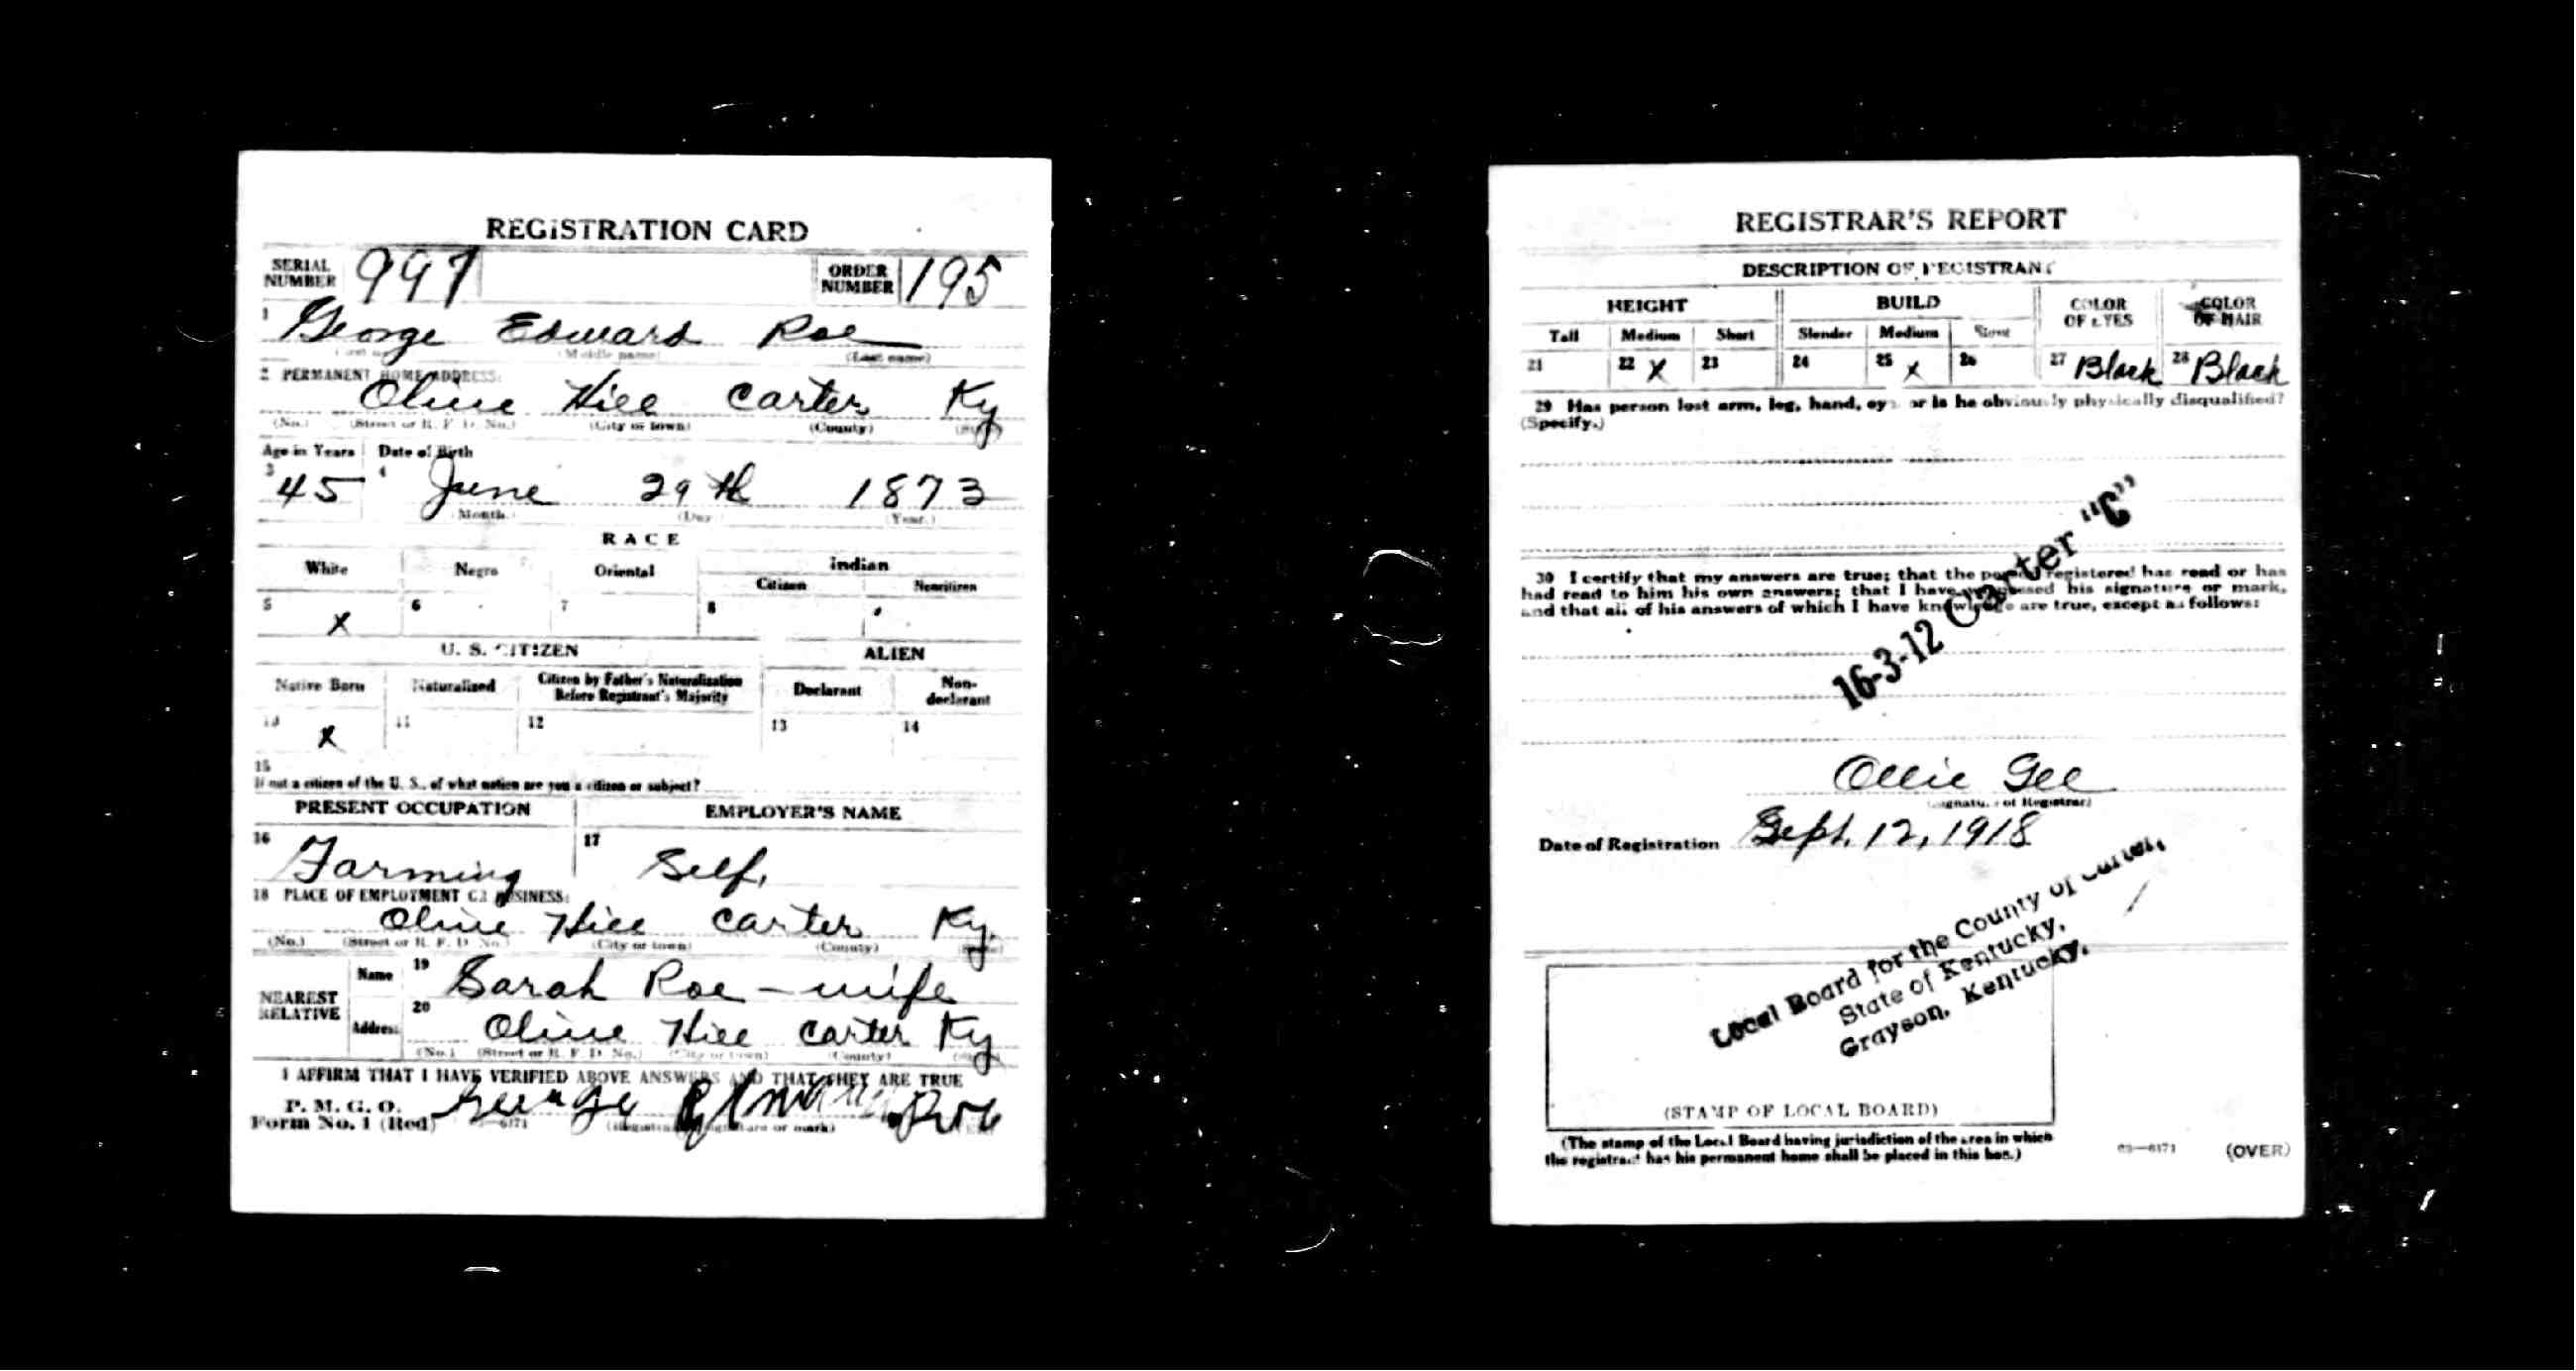 REGISTRATION CARD
SERIAL NUMBER 997 ORDER NUMBER 195
1 George Edward Roe
(Middle name) (Last name)
2 PERMANENT HOME ADDRESS:
Olive Hill Carter Ky
(No.) (Street or R. F. D. No.) (City or town) (County) (State)
Age in Years Date of Birth
3 45 4 June 29th 1873
(Month.) (Day.) (Year.)
RACE
White Negro Oriental Indian
Citizen Noncitizen
5 X 6 7 8
U. S. CITIZEN ALIEN
Native Born Naturalized Citizen by Father's Naturalization Before Registrant's Majority Declarant Non-declarant
10 X 11 12 13 14
15
If not a citizen of the U. S., of what nation are you a citizen or subject?
PRESENT OCCUPATION EMPLOYER'S NAME
16 Farming 17 Self.
18 PLACE OF EMPLOYMENT OR BUSINESS:
Olive Hill Carter Ky.
(No.) (Street or R. F. D. No.) (City or town) (County) (State)
NEAREST RELATIVE Name 19 Sarah Roe - wife
Address 20 Olive Hill Carter Ky
(No.) (Street or R. F. D. No.) (City or town) (County) (State)
I AFFIRM THAT I HAVE VERIFIED ABOVE ANSWERS AND THAT THEY ARE TRUE
P. M. G. O.
Form No. 1 (Red) George Roe
(Registrant's signature or mark)
REGISTRAR'S REPORT
DESCRIPTION OF REGISTRANT
HEIGHT BUILD COLOR OF EYES COLOR OF HAIR
Tall Medium Short Slender Medium Stout
21 22 X 23 24 25 X 26 27 Black 28 Black
29 Has person lost arm, leg, hand, eye, or is he obviously physically disqualified?
(Specify.)
30 I certify that my answers are true; that the person registered has read or has
had read to him his own answers; that I have witnessed his signature or mark,
and that all of his answers of which I have knowledge are true, except as follows:
16-3-12 Carter "C"
Ollie Gee
(Signature of Registrar)
Date of Registration Sept. 12, 1918
Local Board for the County of Carter,
State of Kentucky,
Grayson, Kentucky.
(STAMP OF LOCAL BOARD)
(The stamp of the Local Board having jurisdiction of the area in which
the registrant has his permanent home shall be placed in this box.)
03—6171 (OVER)